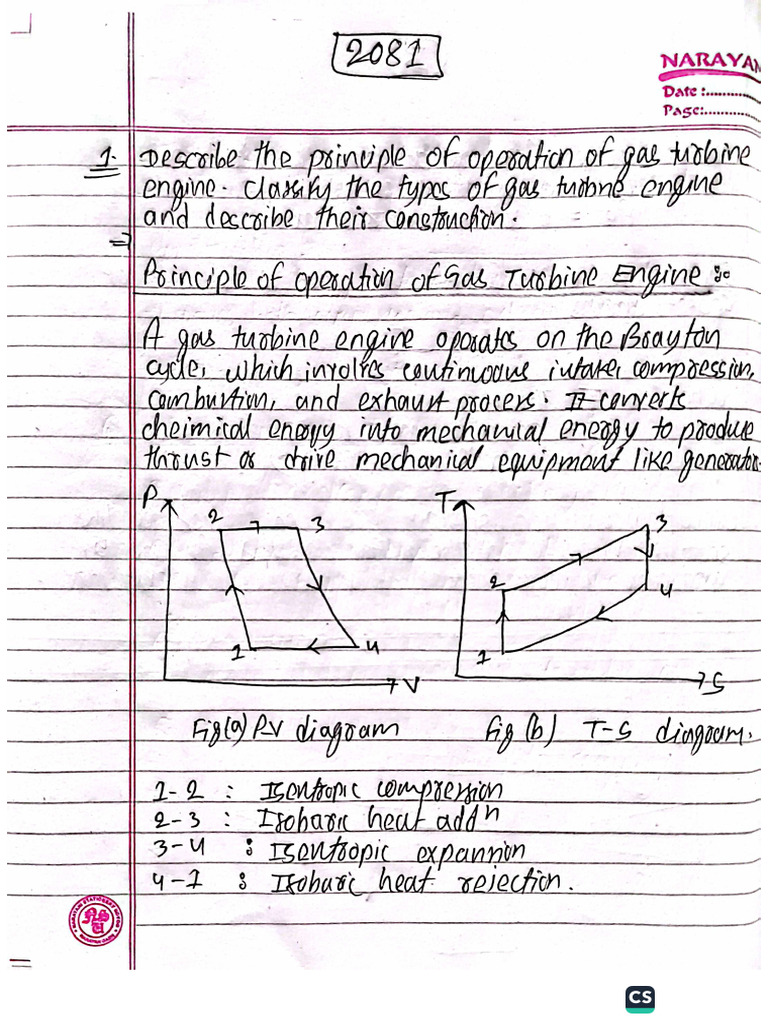 2081
NARAYAN
Date :...........
Page:...........
1. Describe the principle of operation of gas turbine
engine. Classify the types of gas turbine engine
and describe their construction.
⇒
Principle of operation of Gas Turbine Engine :-
A gas turbine engine operates on the Brayton
cycle, which involves continuous intake, compression,
combustion, and exhaust process. It converts
cheimical energy into mechanical energy to produce
thrust or drive mechanical equipment like generator.
P T
2 3 3
2 4
1 4 1
V S
Fig(a) P-V diagram Fig (b) T-S diagram.
1-2 : Isentropic compression
2-3 : Isobaric heat addⁿ
3-4 : Isentropic expansion
4-1 : Isobaric heat rejection.
CS